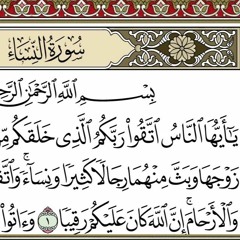 سُورَةُ النِّسَاءِ
بِسْمِ اللَّهِ الرَّحْمَٰنِ
يَٰٓأَيُّهَا النَّاسُ اتَّقُوا۟ رَبَّكُمُ الَّذِى خَلَقَكُم
زَوْجَهَا وَبَثَّ مِنْهُمَا رِجَالًا كَثِيرًا وَنِسَآءً ۚ
وَالْأَرْحَامَ ۚ إِنَّ اللَّهَ كَانَ عَلَيْكُمْ رَقِيبًا ١ وَءَاتُوا۟